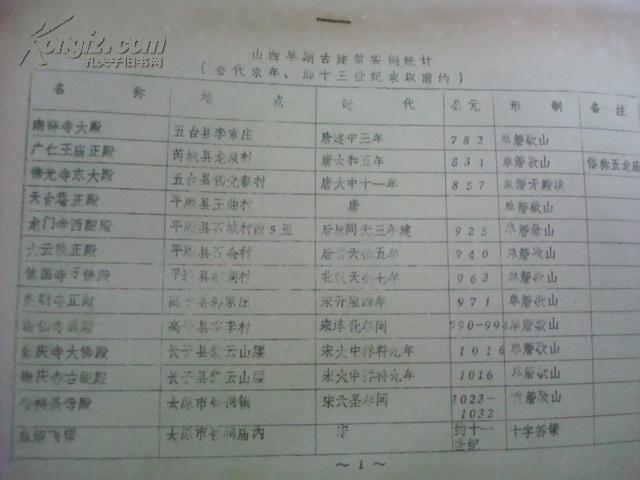 山西早期古建筑实例统计
(金代末年、即十三世纪末以前约)
名 称 地 点 时 代 公元 形 制 备注
南禅寺大殿 五台县李家庄 唐建中三年 782 单檐歇山
广仁王庙正殿 芮城县龙泉村 唐大和五年 831 单檐歇山 俗称五龙庙
佛光寺东大殿 五台县佛光村 唐大中十一年 857 单檐 殿顶
天台庵正殿 平顺县王曲村 唐 单檐歇山
龙门寺西配殿 平顺县石城村西5里 后唐同光三年建 925 单檐悬山
大云院正殿 平顺县石会村 后晋天福五年 940 单檐歇山
镇国寺万佛殿 平遥县郝洞村 北汉天会七年 963 单檐歇山
崇明寺正殿 高平县郭家庄 宋开宝四年 971 单檐歇山
游仙寺前殿 高平县宰李村 宋淳化年间 990-994 单檐歇山
崇庆寺大佛殿 长子县紫云山腰 宋大中祥符九年 1016 单檐歇山
崇庆寺右配殿 长子县紫云山腰 宋大中祥符九年 1016 单檐歇山
晋祠圣母殿 太原市晋祠镇 宋天圣年间 1023-1032 重檐歇山
鱼沼飞梁 太原市晋祠庙内 宋 约十一世纪 十字桥梁
～1～
孔夫子旧书网